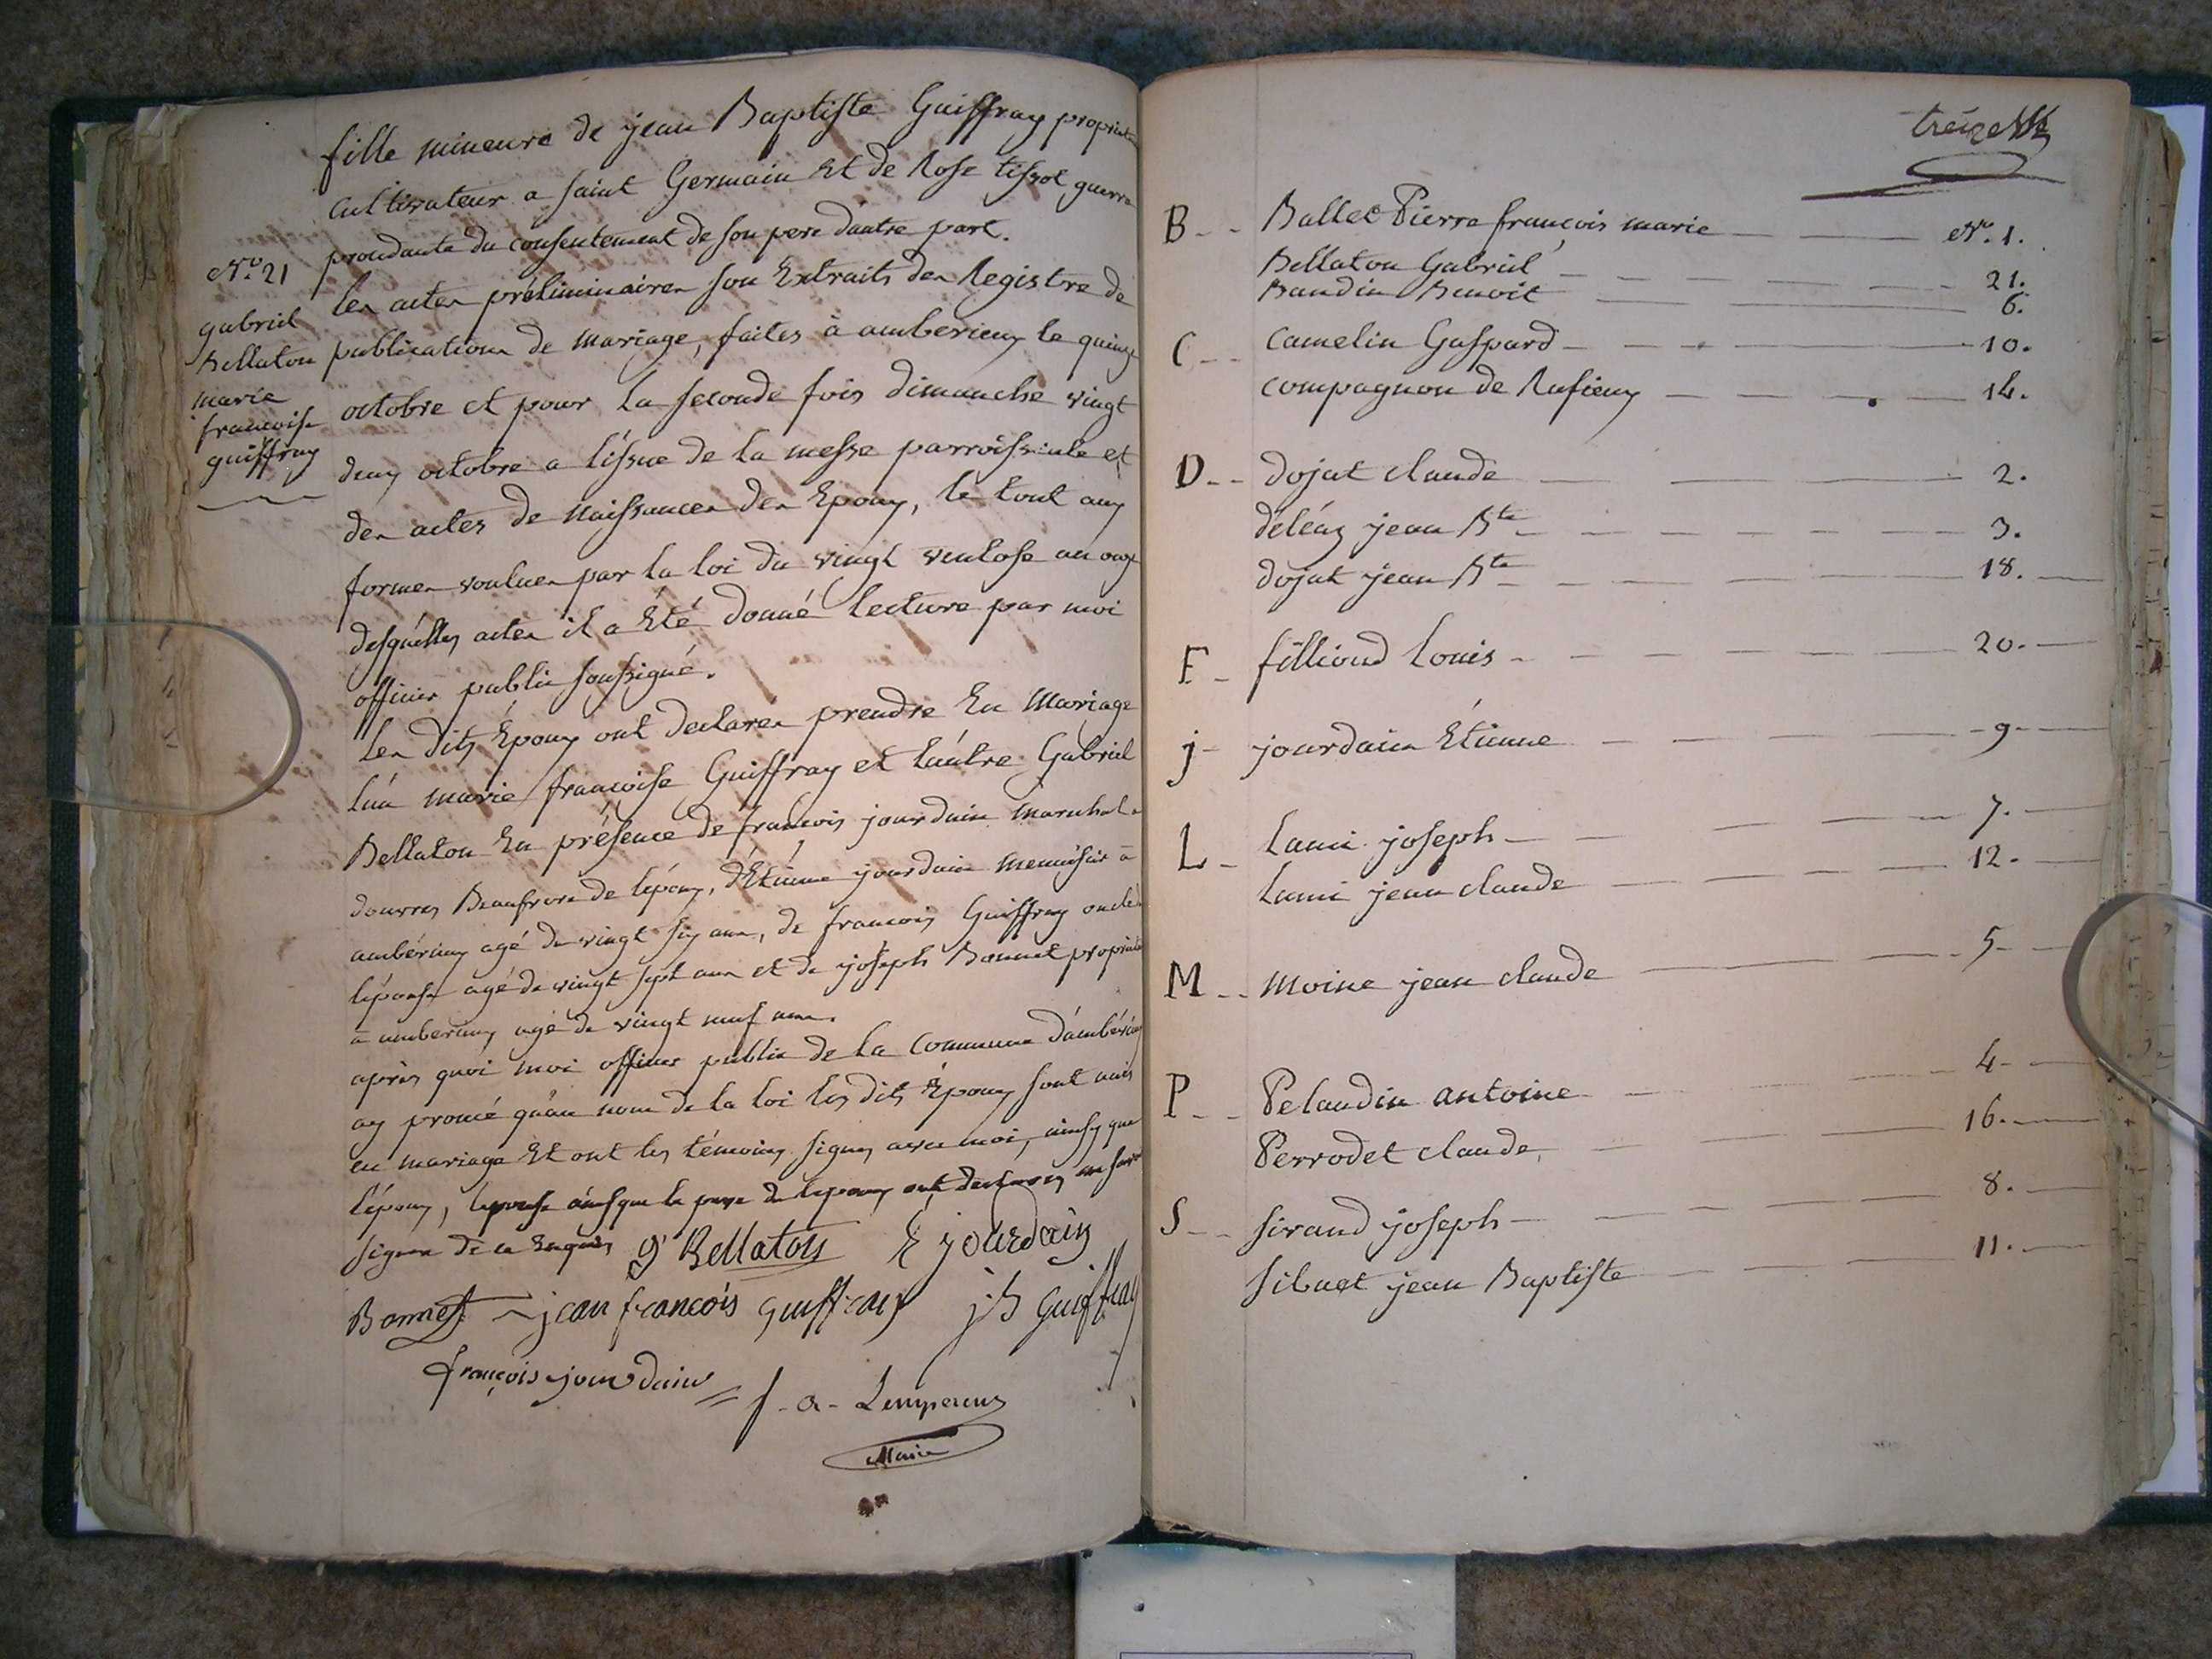 fille mineure de jean Baptiste Guiffray propriétaire
cultivateur a saint Germain Et de Rose tissot
du consentement de son pere dautre part.
N.° 21
gabriel
Bellaton
marie
francoise
guiffray
les actes préliminaires son Extraits des Registre de
publications de mariage, faites à amberieux le quinze
octobre et pour la seconde fois dimanche vingt
deux octobre a l'issue de la messe parroissiale et
des actes de naissances des Epoux, le tout aux
formes voulues par la loi du vingt ventose an onze
desquelles actes il a Eté donné lecture par moi
officier public soussigné.
les dits Epoux ont declarer prendre En Mariage
lun marie francoise Guiffray et lautre Gabriel
Bellaton En présence de francois jourdain marechal a
douvres Beaufrere de lépoux, d'Etienne jourdain menuisier a
ambérieux agé de vingt six ans, de francois Guiffray oncle de
lépouse agé de vingt sept ans et de joseph Bonnet propriétaire
a amberieux agé de vingt neuf ans.
après quoi moi officier public de la commune d'ambérieux
ay quau nom de la loi les dits Epoux sont unis
en mariage Et ont les témoins signes avec moi, ainsy que
lépoux, lepouse ainsi que le pere de lepoux ont declarer
signer de ce Enquis g Bellaton E jourdain
Bonnet jean francois guiffray j B guiffray
françois jourdain f. a. Lempereur
Maire
treize
B - - Ballet Pierre françois marie - N.° 1.
Bellaton Gabriel - 21.
Baudin Benoit - 6.
C - - Camelin Gaspard - 10.
compagnon de Rufieux - 14.
D - - dojat claude - 2.
déléaz jean Bte - 3.
dojat jean Bte - 18.
F - filliond louis - 20.
j - jourdain Étienne - 9
L - lami joseph - 7.
lami jean claude - 12.
M - - moine jean claude - 5
P - - Pelaudin antoine - 4
Perrodet claude, - 16.
S - - sirand joseph - 8.
sibuet jean Baptiste - 11.